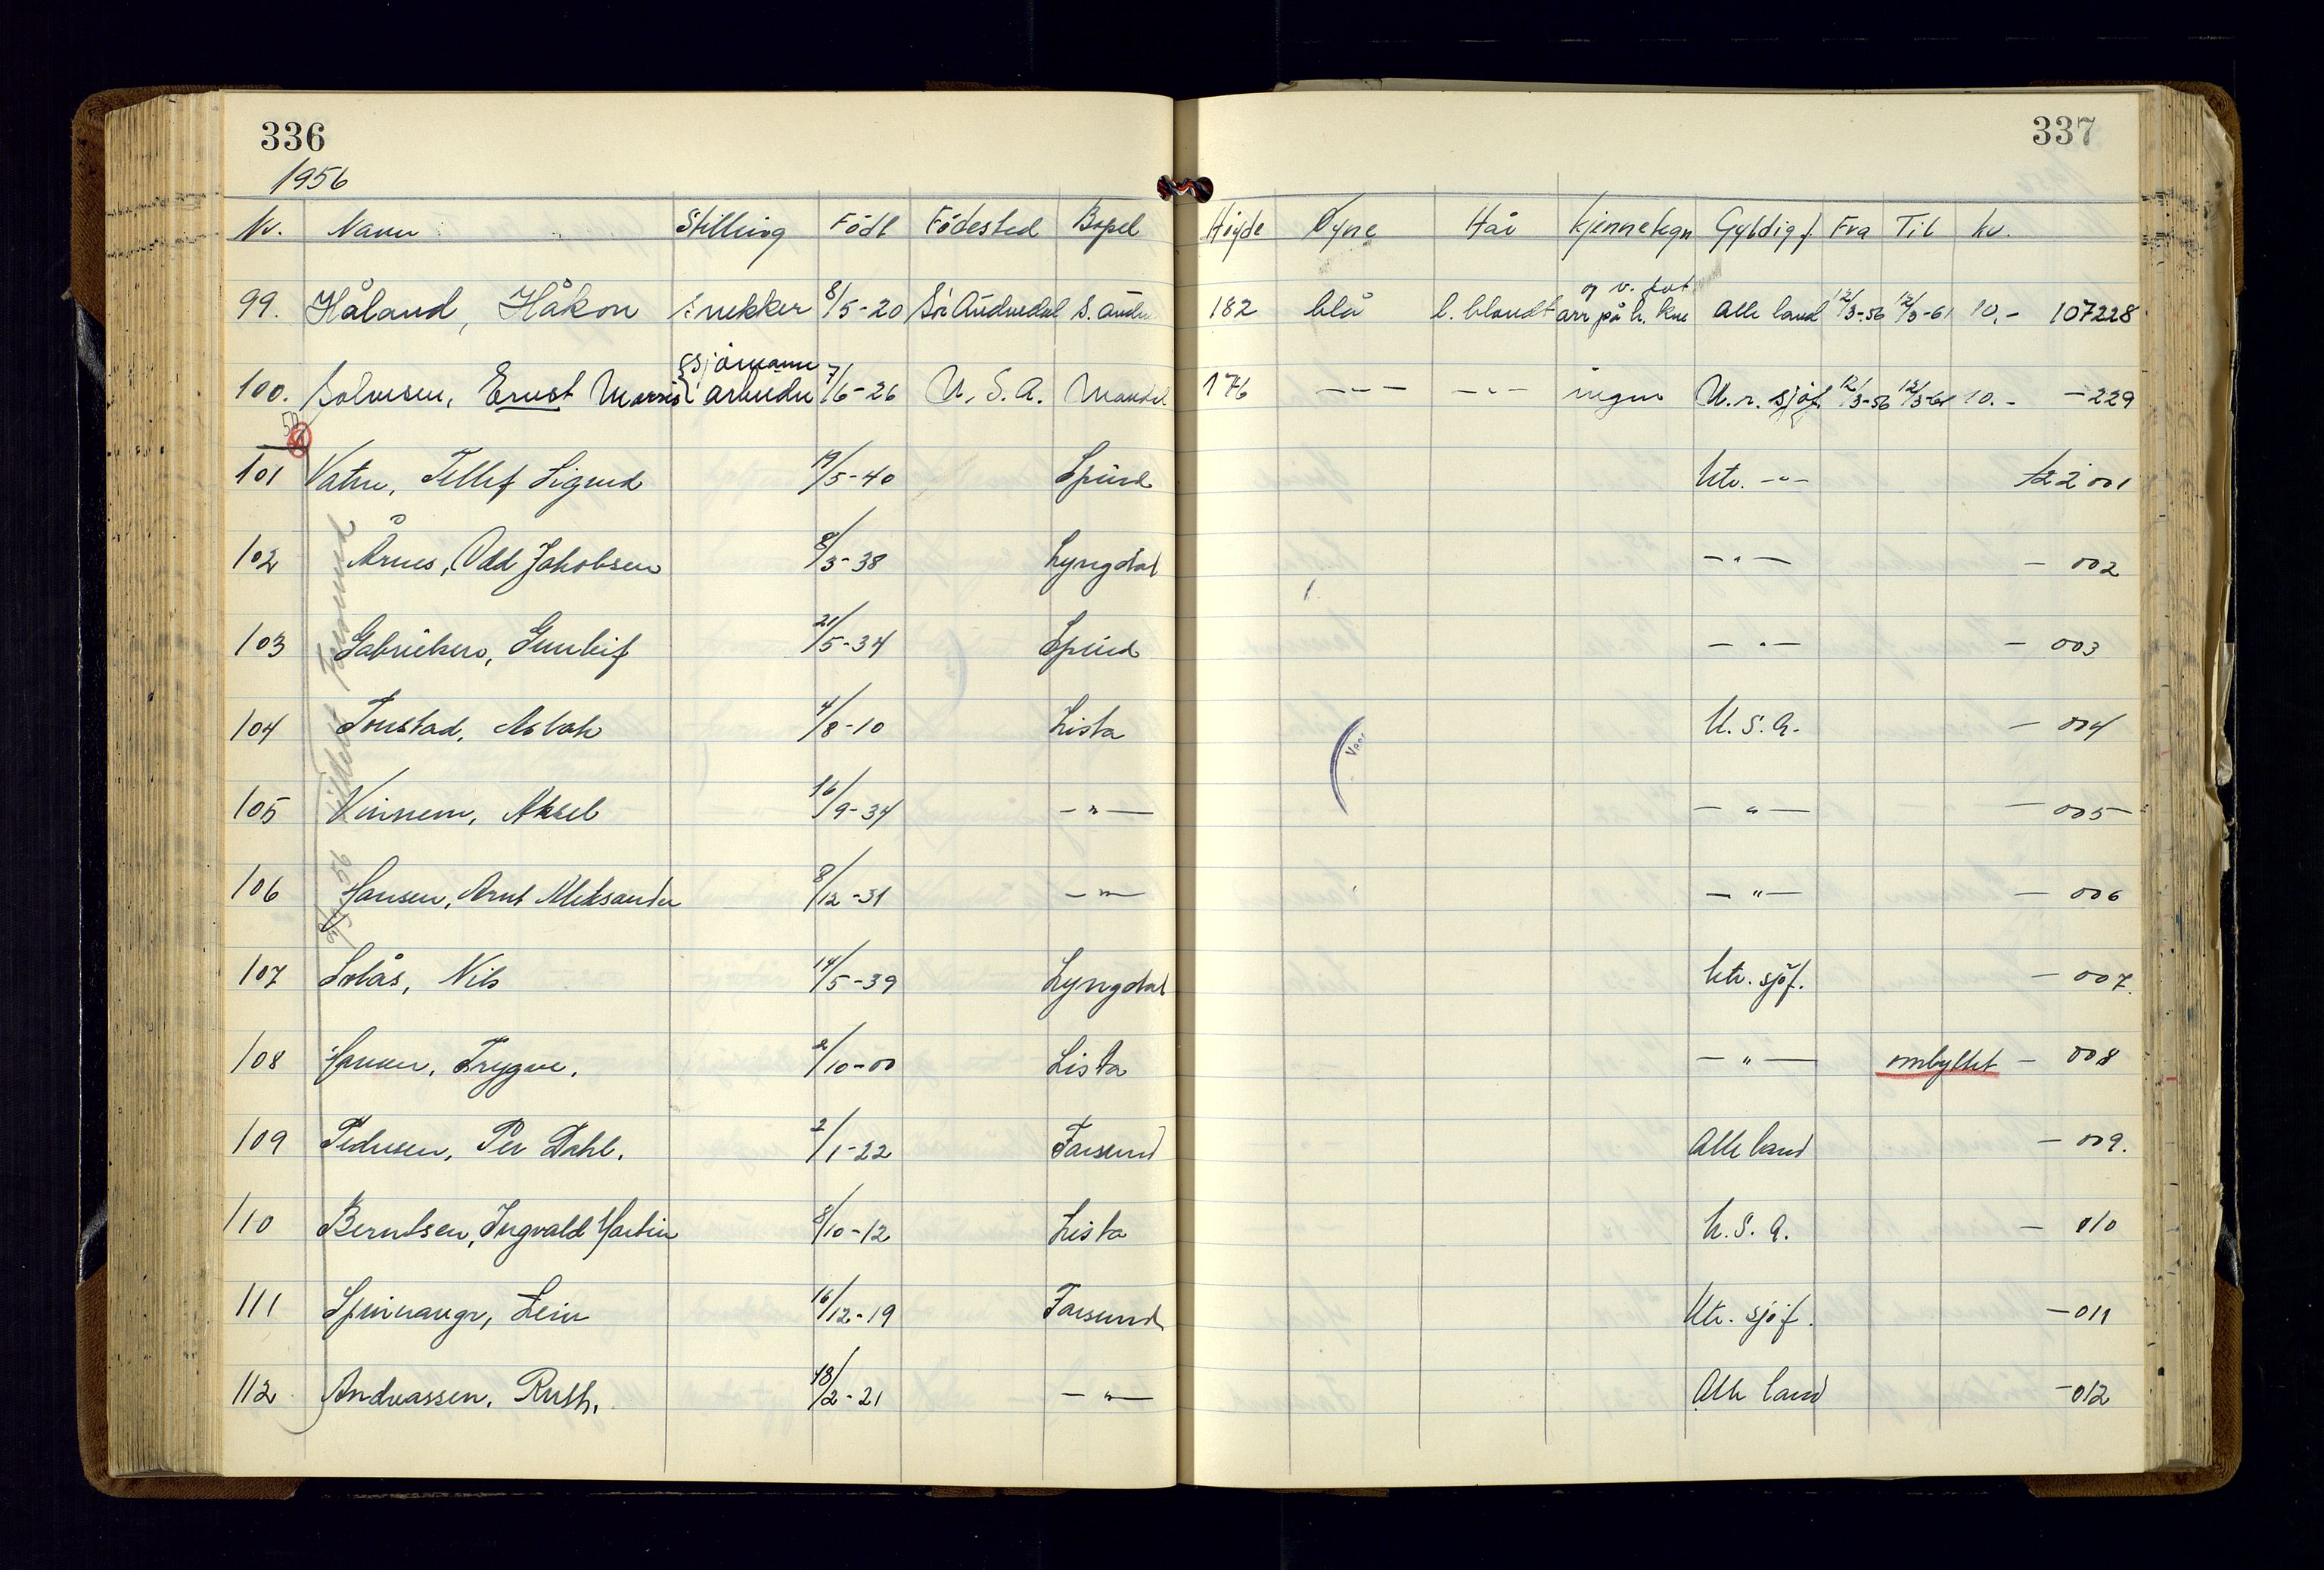 336
337
1956
Nr. Navn Stilling Født Fødested Bopel Høyde Øyne Hår Kjennetegn Gyldig f. Fra Til kr.
99. Håland, Håkon snekker 8/5-20 Sør Audnedal S. Audn. 182 blå l. blondt og v. fot arr på h. kne Alle land 12/3-56 12/3-61 10.- 107228
100. Ernst Morris sjømann arbeider 7/6-26 U.S.A. Mandal 176 -"- -"- ingen U.r. sjøf. 12/3-56 12/3-61 10.- -229
101 Vatne, Tellef Sigurd 19/5-40 Spind Utv. -"- 122001
102 Årnes, Odd Jakobsen 8/3-38 Lyngdal -"- - 002
103 Gabrielsen, Gunleif 21/5-34 Spind -"- - 003
104 Tonstad, Aslak 4/8-10 Lista U.S.A. - 004
105 Vinnem, Aksel 16/9-34 -"- -"- - 005
106 Hansen, Arnt Aleksander 8/12-31 -"- -"- - 006
107 Solås, Nils 14/5-39 Lyngdal Utv. sjøf. - 007.
108 Hansen, Trygve. 2/10-00 Lista -"- ombyttet - 008
109 Pedersen, Per Dahl. 2/1-22 Farsund Alle land - 009.
110 Berntsen, Ingvald Martin 8/10-12 Lista U.S.A. - 010
111 Spinnangr, Lein 16/12-19 Farsund Utv. sjøf. - 011
112 Andreassen, Ruth. 18/2-21 -"- Alle land - 012